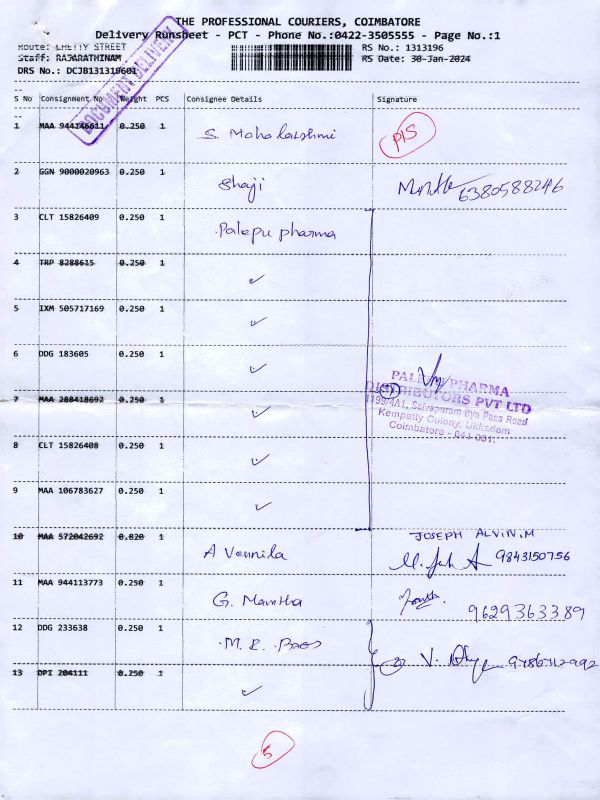 THE PROFESSIONAL COURIERS, COIMBATORE
Delivery Runsheet - PCT - Phone No.:0422-3505555 - Page No.:1
Route: CHETTY STREET
Staff: RAJARATHINAM
DRS No.: DCJB131319601
RS No.: 1313196
RS Date: 30-Jan-2024
DOCUMENT DELIVERY
S No Consignment No Weight PCS Consignee Details Signature
1 MAA 944146611 0.250 1 S. Mahalakshmi PIS
2 GGN 9000020963 0.250 1 Shaji 6380588246
3 CLT 15826409 0.250 1 Palepu pharma
4 TRP 8288615 0.250 1 ✓
5 IXM 505717169 0.250 1 ✓
6 DDG 183605 0.250 1 ✓
7 MAA 288418692 0.250 1 ✓
8 CLT 15826408 0.250 1 ✓
9 MAA 106783627 0.250 1 ✓
PALEPU PHARMA
DISTRIBUTORS PVT LTD
1199/4A1, Selvapuram Bye Pass Road
Kempatty Colony, Ukkadam
Coimbatore - 641 001.
10 MAA 572042692 0.820 1 A Vennila JOSEPH ALVIN.M
9843150756
11 MAA 944113773 0.250 1 G. Mamtha 9629363389
12 DDG 233638 0.250 1 M. R. Baos
13 DPI 204111 0.250 1 ✓
5